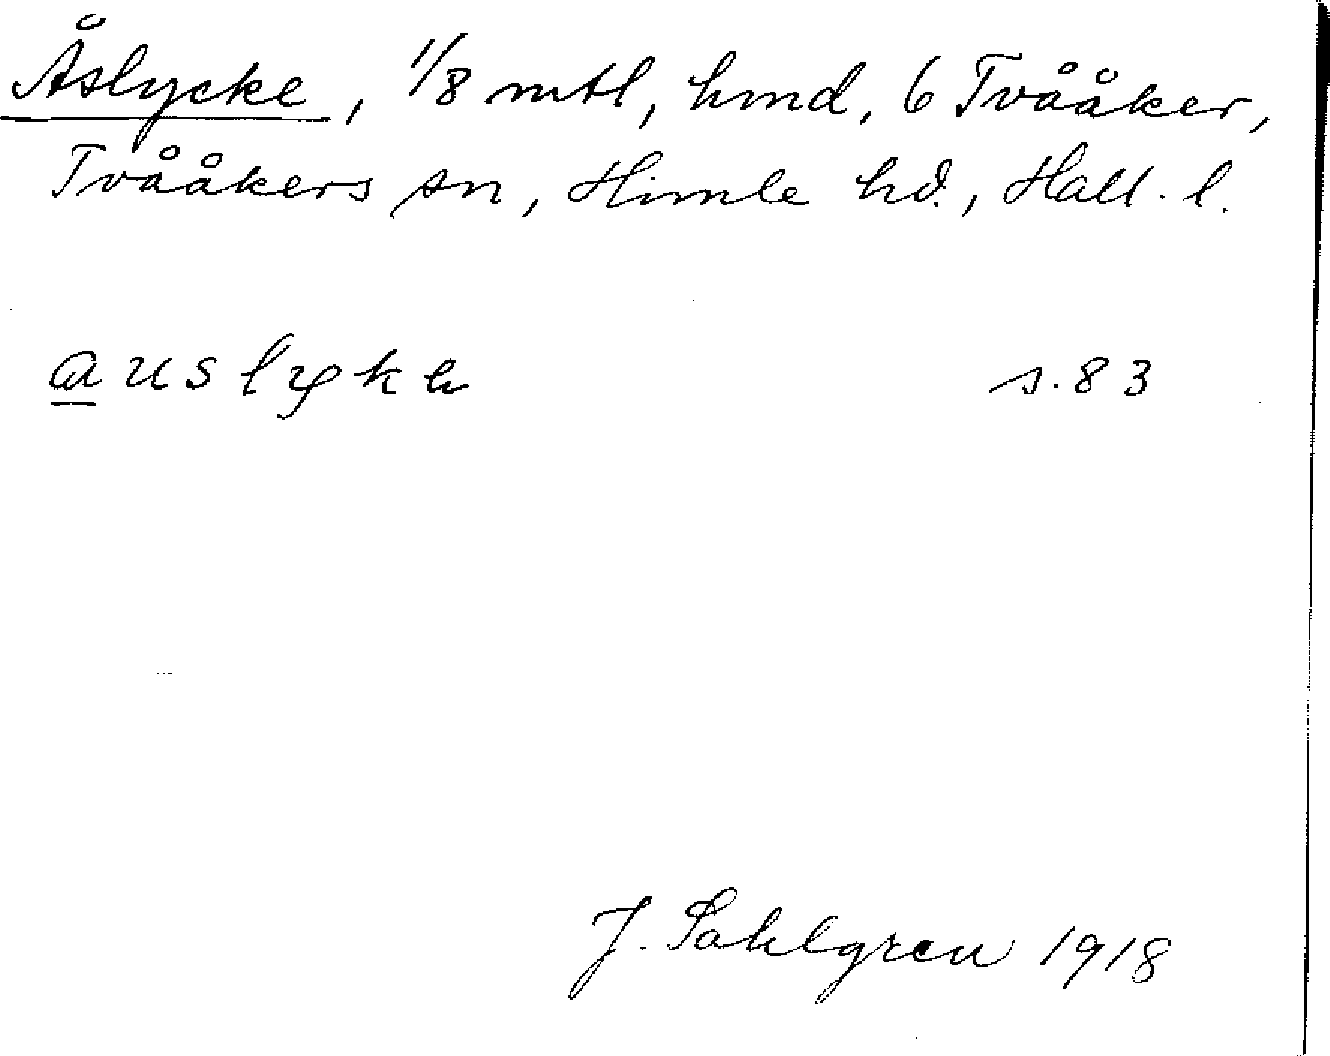 Åslycke, 1/8 mtl, hmd, 6 Tvååker,
Tvååkers sn, Himle hd., Hall. l.
s. 83
J. Sahlgren 1918